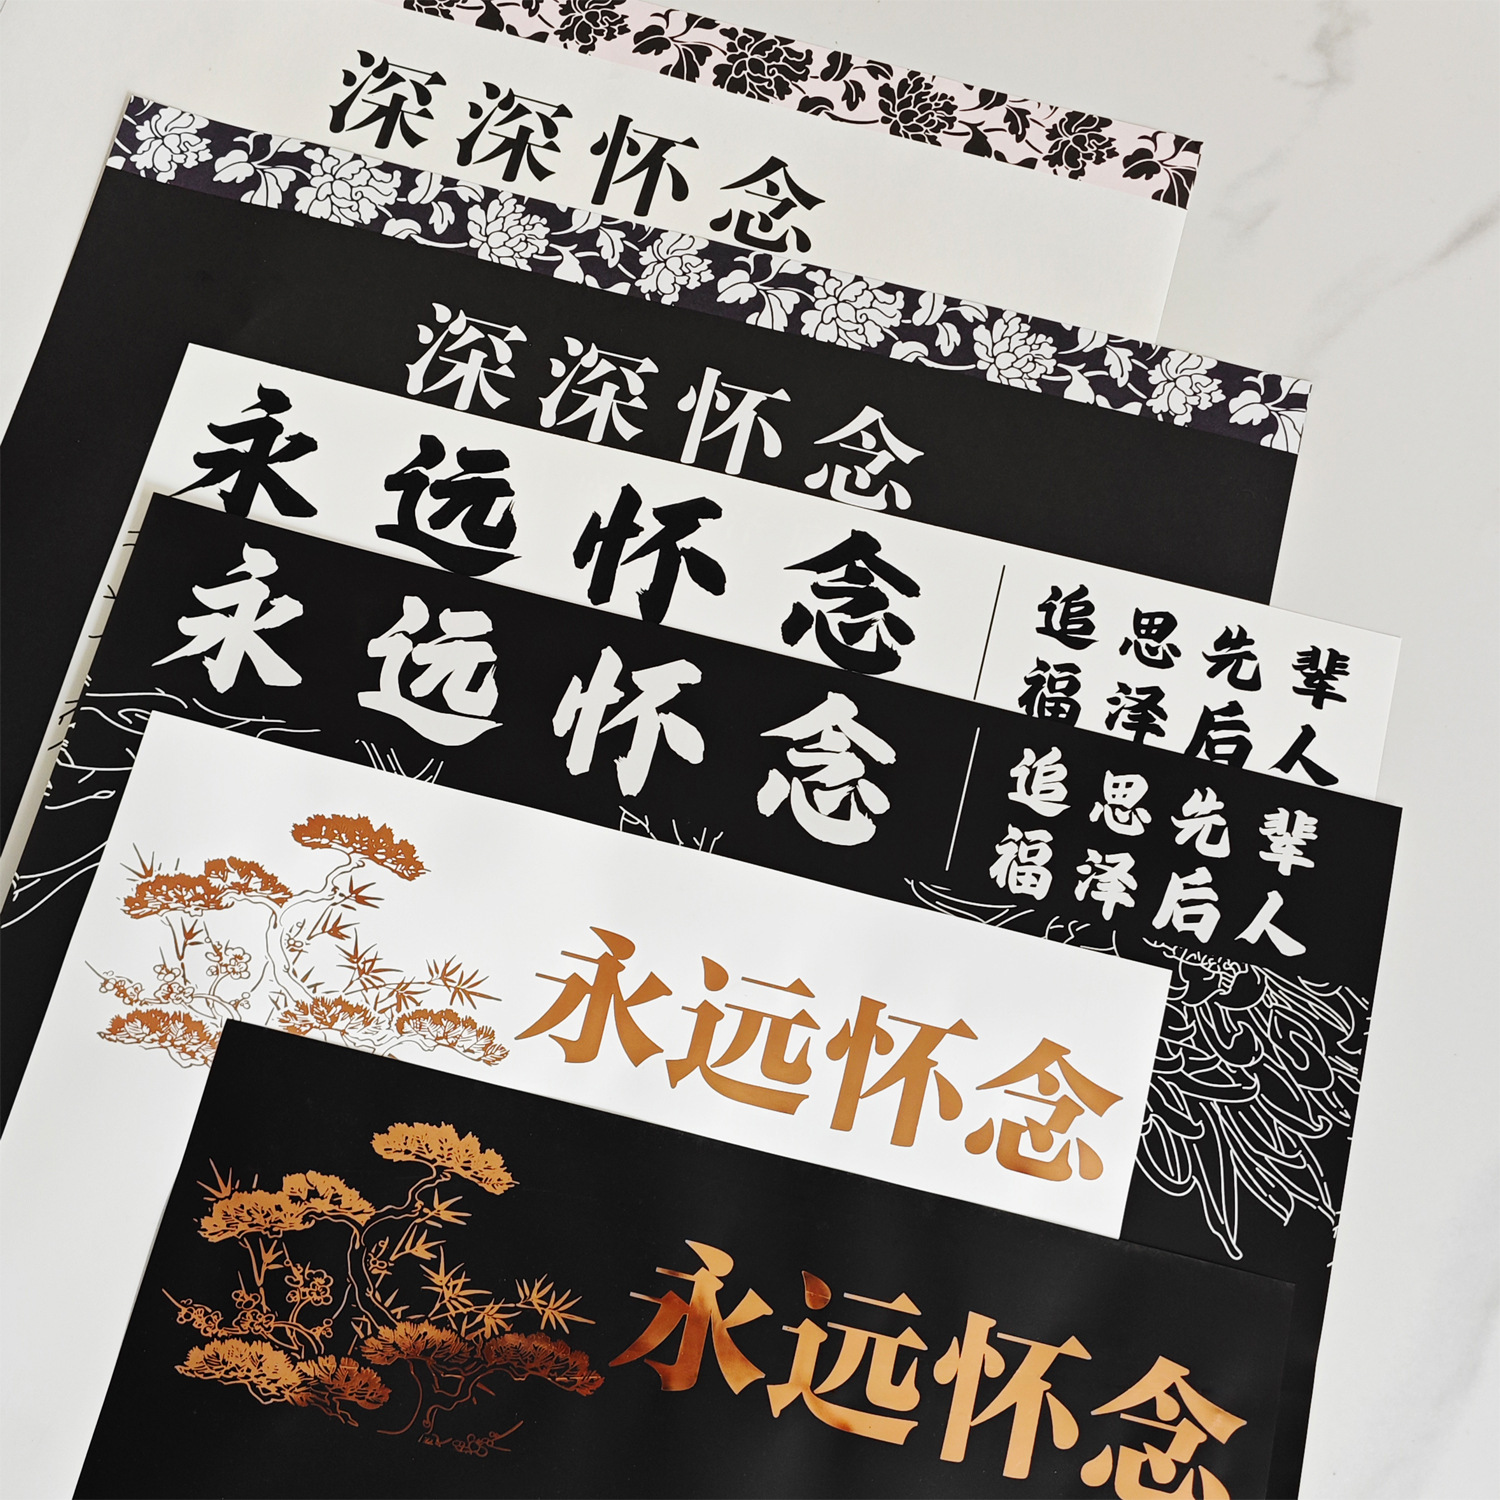 深深怀念
深深怀念
永远怀念
追思先辈
福泽后人
永远怀念
追思先辈
福泽后人
永远怀念
永远怀念